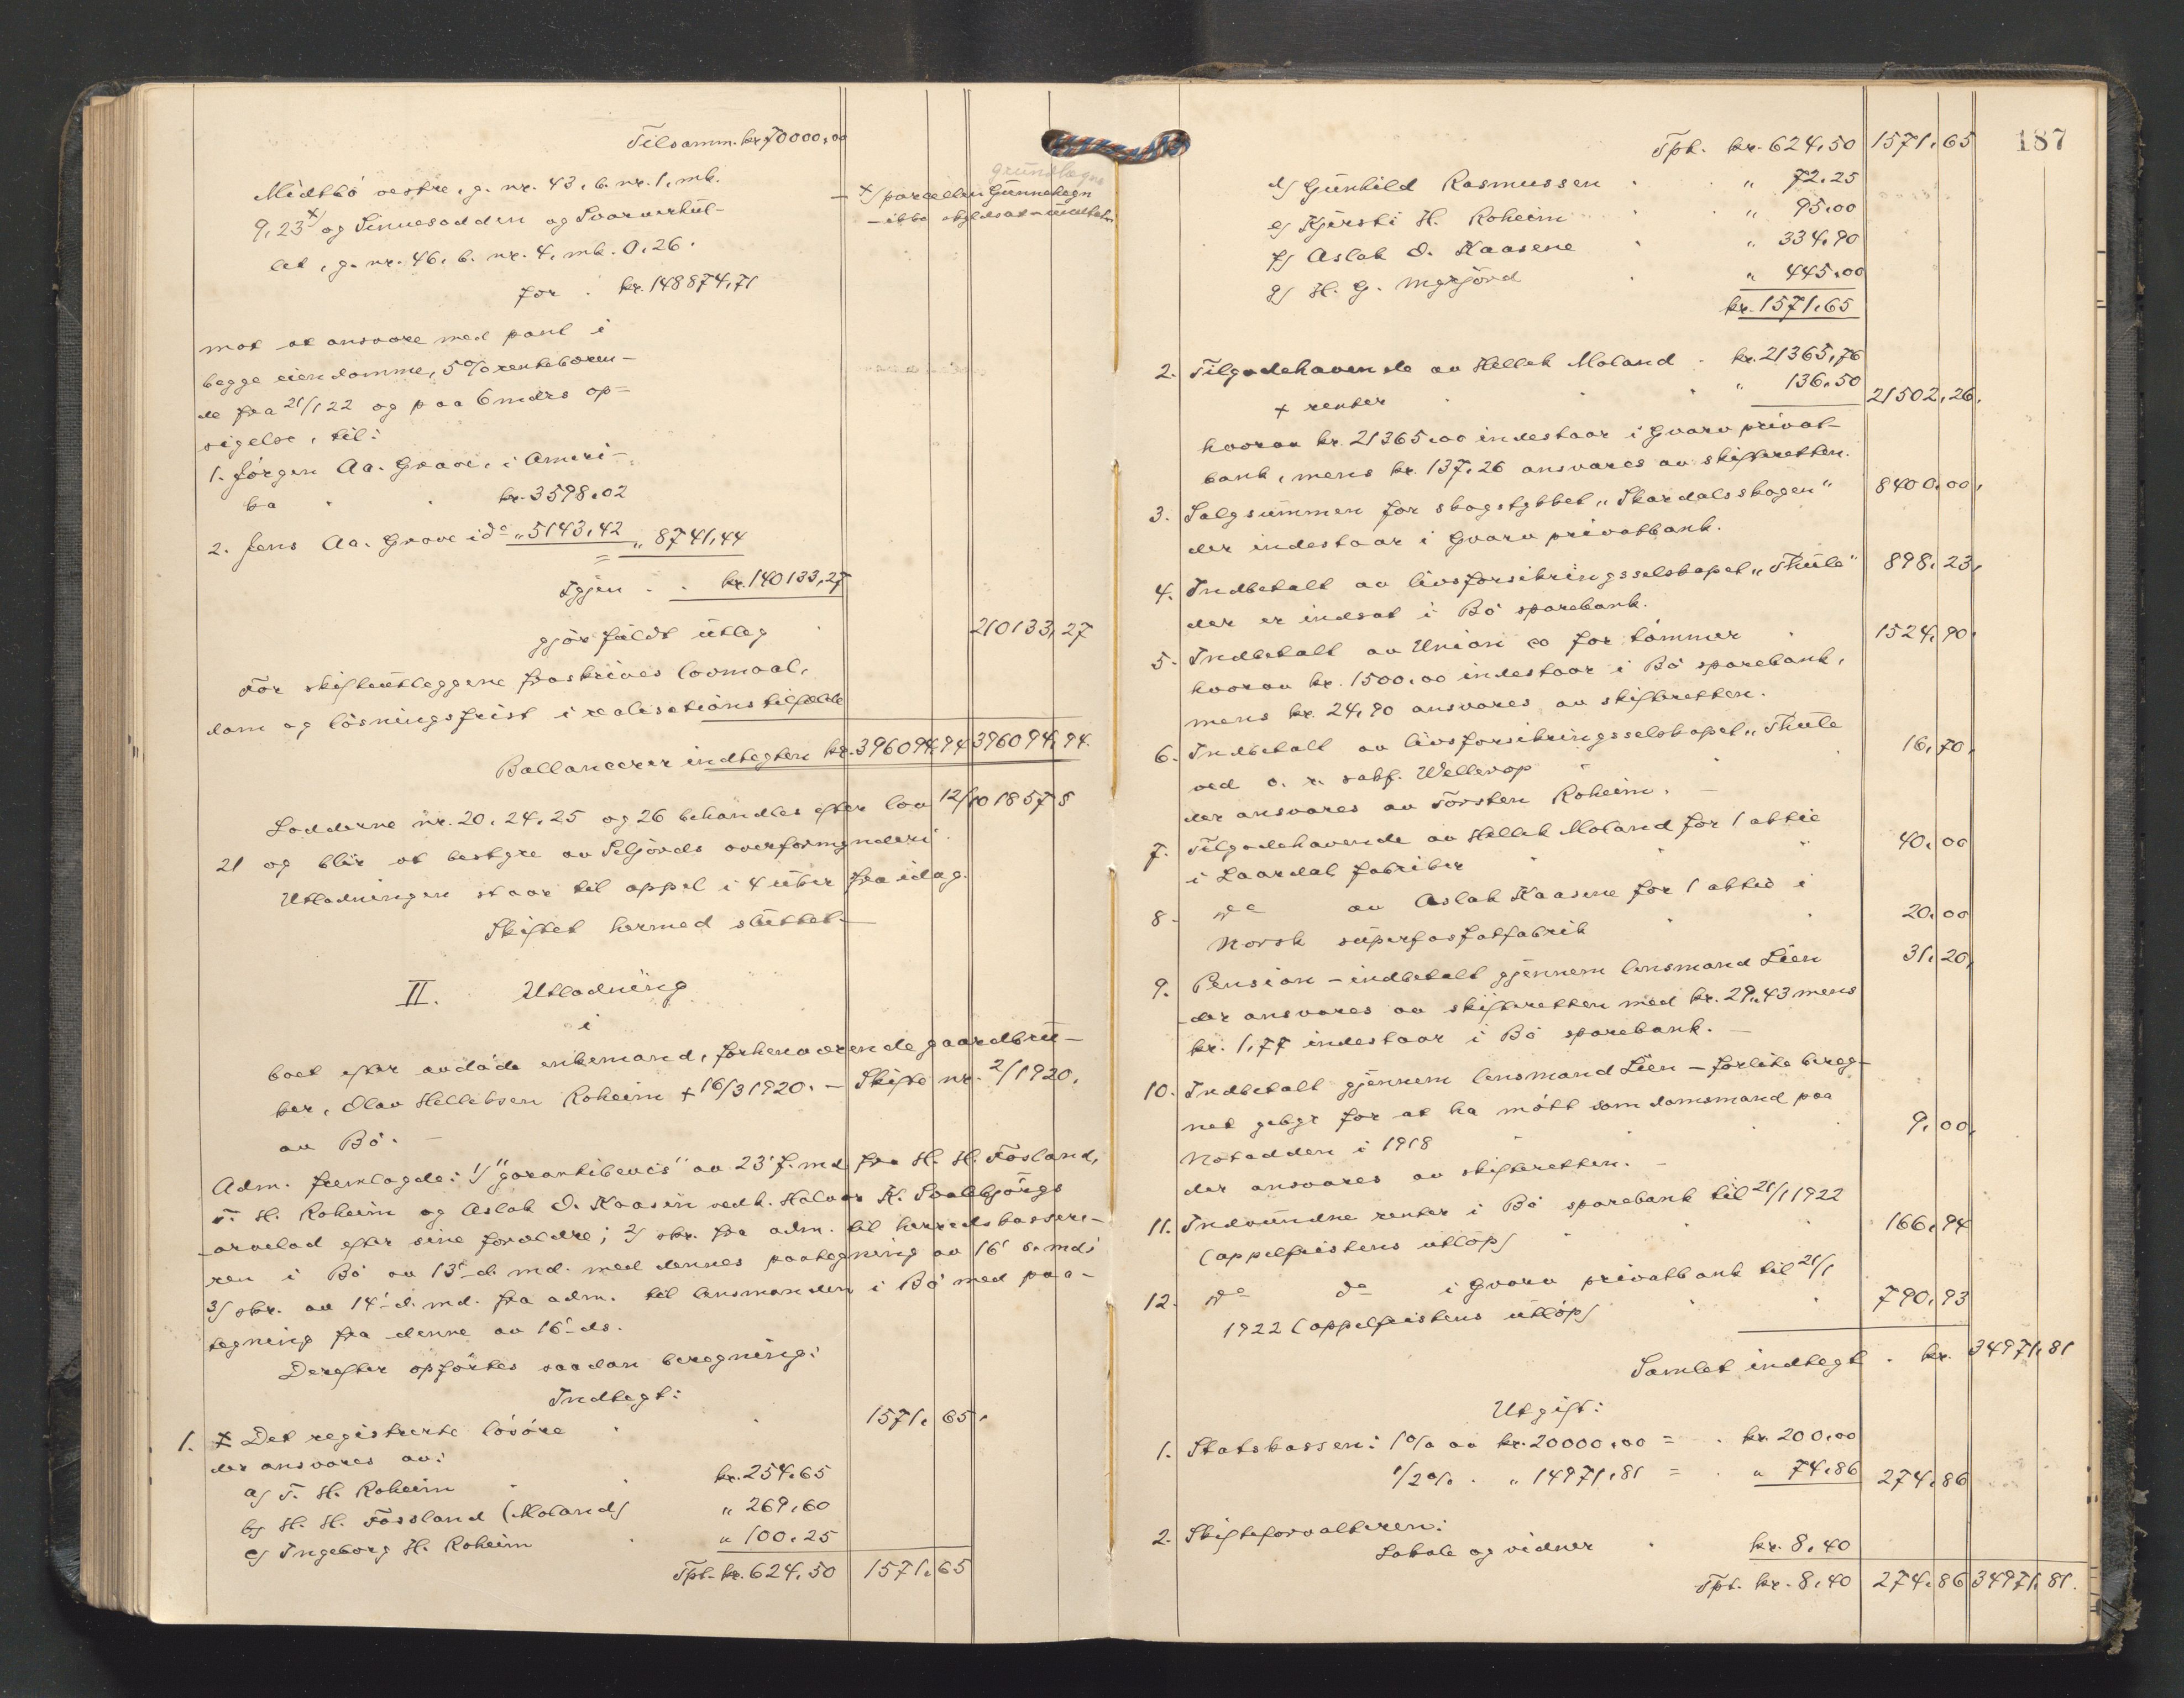 Tilsamm. kr. 70000,00
Midtbö vestre, g. nr. 43, b. nr. 1, mk.
9,23 x) og Sinnesodden og Svarverhül-
let, g. nr. 46, b. nr. 4, mk. 0,26.
for . kr. 148874,71
x) parcellen Günneslegn
grundlegn
- ikke utgl
mot at ansvare med pant i
begge eiendomme, 5% rentebæren-
de fra 21/1 22 og paa 6 mdrs op-
sigelse, til:
1. Jörgen Aa. Grave, i Ameri-
ka . . kr. 3598,02
2. Jens Aa. Grave i do „ 5143,42 „ 8741,44
Igjen . . kr. 140133,27
gjör füldt ütleg . 210133,27
For skifteütleggene fraskrives lovmaal,
dom og lösningsfrist i realisations tilfælde
Ballancerer indtegten kr. 396094,94 396094,94.
Lodderne nr. 20, 24, 25 og 26 behandles efter lov 12/10 1857 §
21 og blir at bestyre av Seljords overformynderi.
Utlodningen staar til appel i 4 üker fra idag.
Skiftet hermed slüttet.
II. Utlodning
i
boet efter avdöde enkemand, forhenværende gaardbrü-
ker, Olav Helliksen Roheim + 16/3 1920. - Skifte nr. 2/1920,
av Bö. -
Adm. fremlagde: 1) "garantibevis" av 23' f. md. fra H. H. Fosland,
T. H. Roheim og Aslak O. Kaasen vedk. Halvor K. Svalbjörgs
arvelod efter sine forældre; 2) skr. fra adm. til herredskassere-
ren i Bö av 13' d. md. med dennes paategning av 16' s. md;
3) skr. av 14' d. md. fra adm. til lensmanden i Bö med paa-
tegning fra denne av 16' ds.
Derefter opförtes saadan beregning:
Indtegt:
1. Det registrerte lösöre . . 1571,65.
der ansvares av:
a) T. H. Roheim . kr. 254,65
b) H. H. Fossland (Moland) „ 269,60
c) Ingeborg H. Roheim . „ 100,25
Tpt. kr. 624,50 1571,65
187
Tpt. kr. 624,50 1571,65
d) Günhild Rasmussen . . „ 72,25
e) Kjersti H. Roheim . . „ 95,00
f) Aslak O. Kaasene . „ 334,90
g) H. G. Myrjord . „ 445,00
kr. 1571,65
2. Tilgodehavende av Hellek Moland . kr. 21365,76
+ renter . . . „ 136,50 21502,26.
hvorav kr. 21365,00 indestaar i Gvarv privat-
bank, mens kr. 137,26 ansvares av skifteretten.
3. Salgsümmen for skogstykket „Skardalsskogen" 8400,00,
der indestaar i Gvarv privatbank.
4. Indbetalt av livsforsikringsselskapet „Thüle" 898,23,
der er indsat i Bö sparebank.
5. Indbetalt av Union co for tömmer . 1524,90.
hvorav kr. 1500,00 indestaar i Bö sparebank,
mens kr. 24,90 ansvares av skifteretten.
6. Indbetalt av livsforsikringsselskapet „Thüle
ved o. r. sakf. Wellerop . . . 16,70,
der ansvares av Torsten Roheim. -
7. Tilgodehavende av Hellek Moland for 1 aktie
i Laardal fabriker . . . 40,00
8. do av Aslak Kaasene for 1 aktie i
Norsk süperfosfatfabrik . . 20,00
9. Pension - indbetalt gjennem lensmand Lien 31,20,
der ansvares av skifteretten med kr. 29,43 mens
kr. 1,77 indestaar i Bö sparebank. -
10. Indbetalt gjennem lensmand Lien - forlite bereg-
net gebyr for at ha mött som domsmand paa
Notodden i 1918 . . . 9,00,
der ansvares av skifteretten. -
11. Indvündne renter i Bö sparebank til 21/1 1922
(appelfristens utlöp) . . . 166,94
12. do do i Gvarv privatbank til 21/1
1922 (appelfristens ütlöp) . . 790,93
Samlet indtegt . kr. 34971,81
Utgift:
1. Statskassen: 1% av kr. 20000,00 = . kr. 200,00
1/2% . „ 14971,81 = . „ 74,86 274,86
2. Skifteforvalteren:
Lokale og vidner . kr. 8,40
Tpt. kr. 8,40 274,86 34971,81.